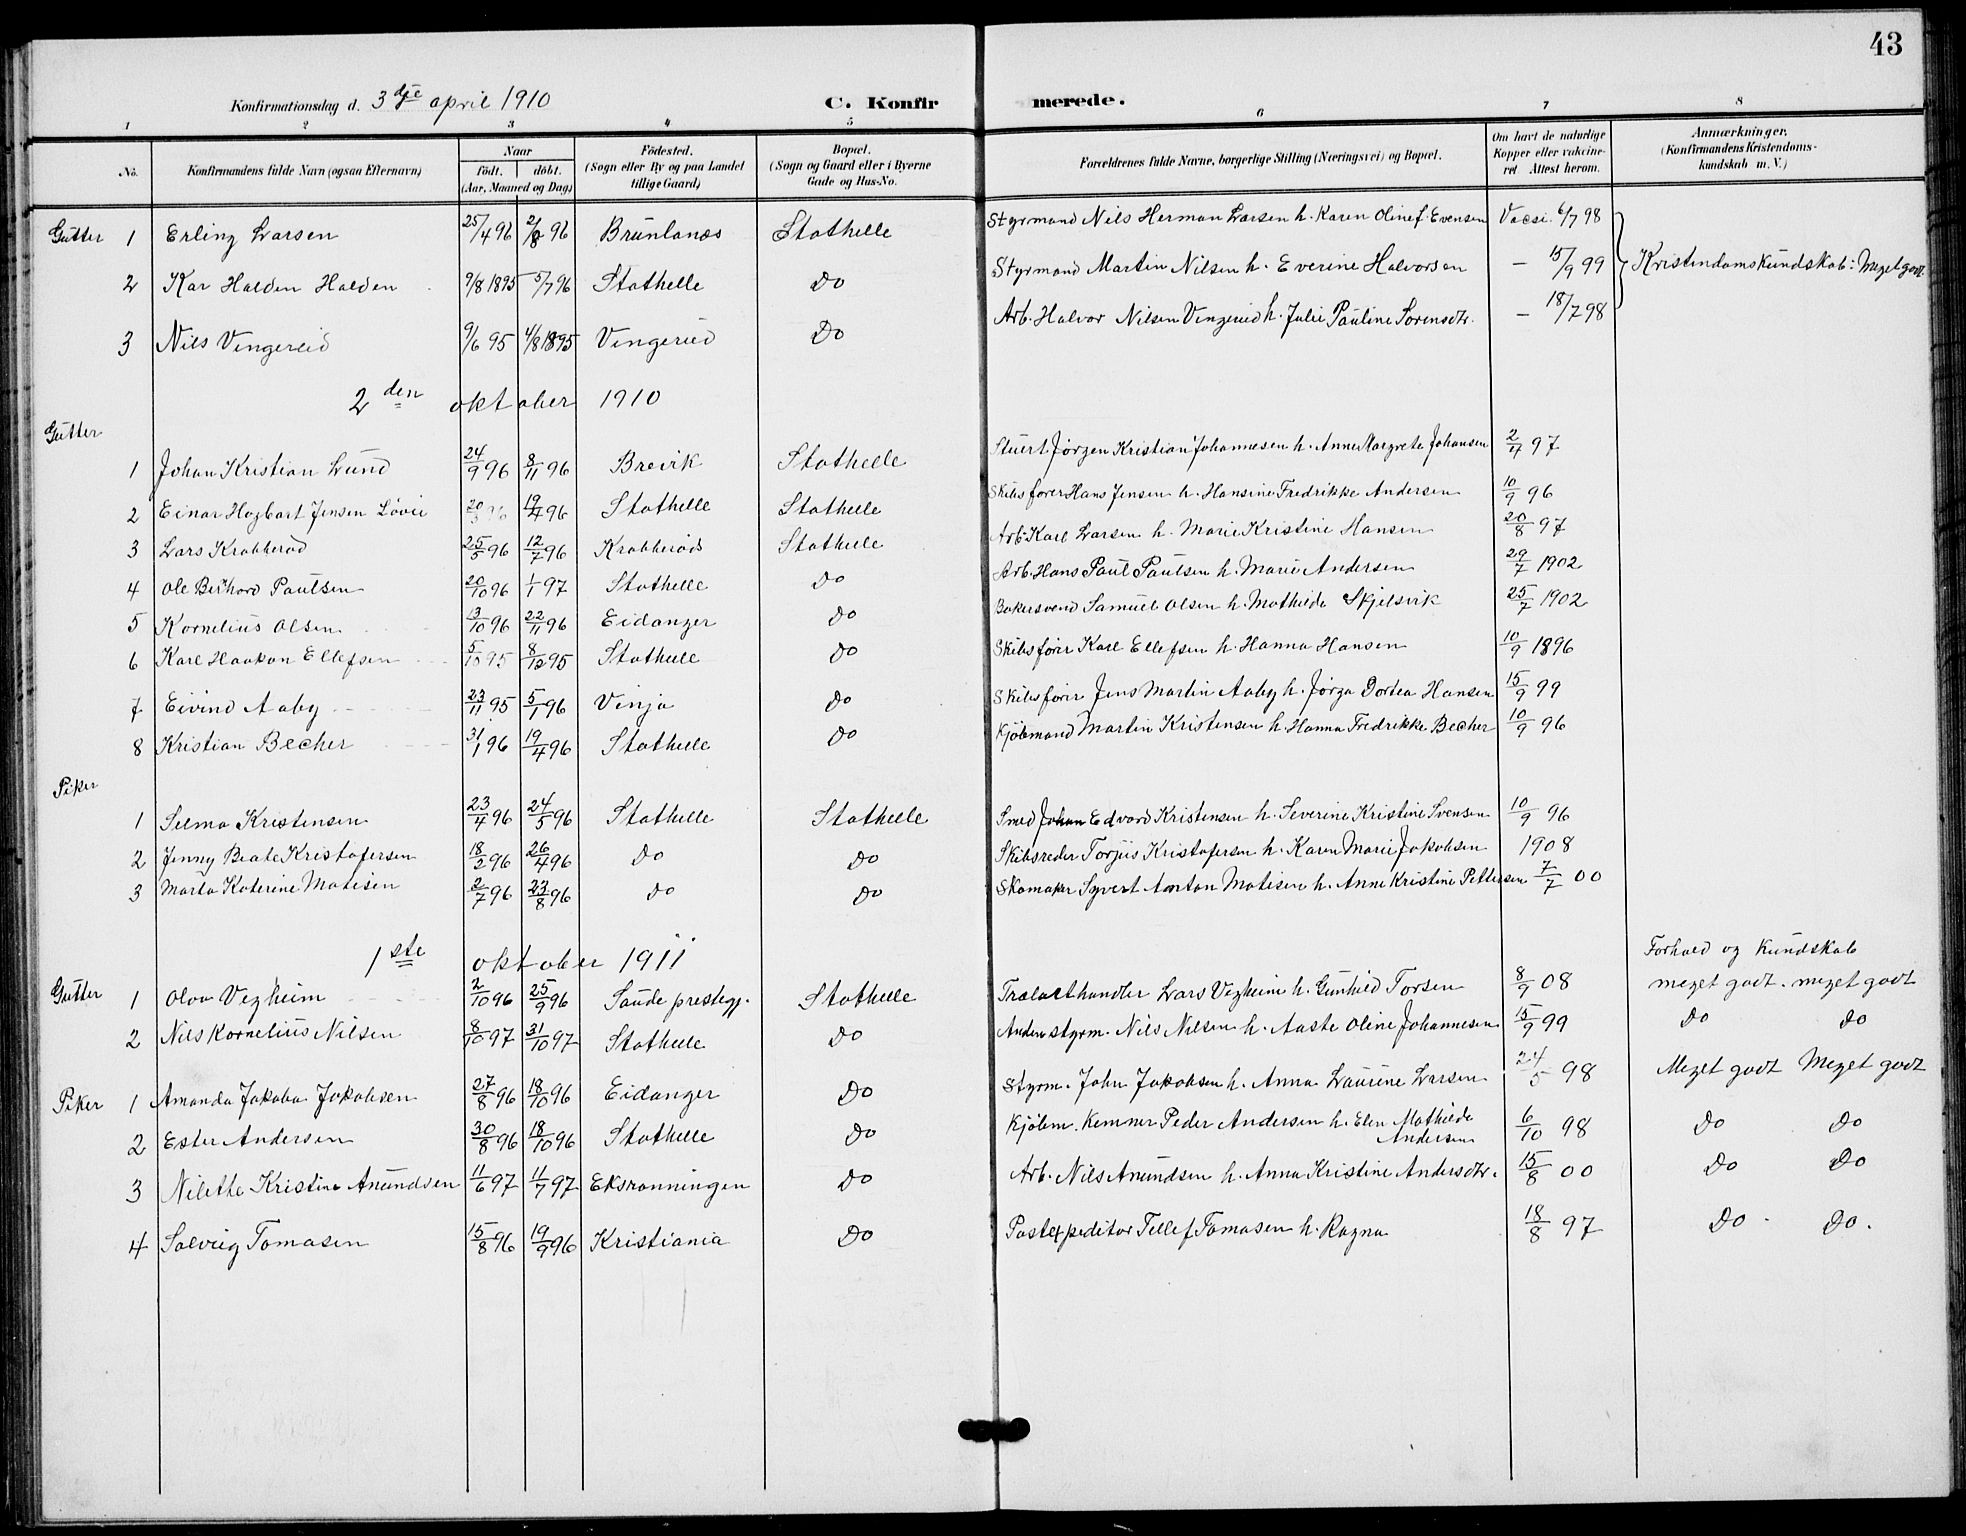 43
Konfirmationsdag d. 3dje april 1910 C. Konfirmerede.
1 2 3 4 5 6 7 8
No. Konfirmandens fulde Navn (ogsaa Efternavn) Naar født. døbt. (Aar, Maaned og Dag) Fødested. (Sogn eller By og paa Landet tillige Gaard) Bopæl. (Sogn og Gaard eller i Byerne Gade og Hus-No. Forældrenes fulde Navne, borgerlige Stilling (Næringsvei) og Bopæl. Om havt de naturlige Kopper eller vakcineret Attest herom. Anmærkninger. (Konfirmandens Kristendomskundskab m. V.)
Gutter 1 Erling Larsen 25/4 96 2/8 96 Brunlanæs Stathelle Styrmand Nils Herman Larsen h. Karen Oline f. Evensen Vacsi. 6/7 98
2 Kar Halden Halden 9/8 1895 5/7 96 Stathelle Do Styrmand Martin Nilsen h. Everine Halvorsen — 15/9 99 Kristendomskundskab: Meget godt
3 Nils Vingereid 9/6 95 4/8 1895 Vingereid Do Arb. Halvor Nilsen Vingereid h. Julie Pauline Sørensdtr. — 18/7 98
2den oktober 1910
Gutter
1 Johan Kristian Lund 24/9 96 8/11 96 Brevik Stathelle Stuert Jørgen Kristian Johannesen h. Anne Margrete Johansen 2/4 97
2 Einar Hagbart Jensen Løvei 19/4 96 Stathelle Stathelle Skibsfører Hans Jensen h. Hansine Fredrikke Andersen 10/9 96
3 Lars Krabberød 25/5 96 12/7 96 Krabberøds Stathelle Arb. Karl Larsen h. Marie Kristine Hansen 20/8 97
4 Ole Berhard Paulsen 20/10 96 1/1 97 Stathelle Do Arb. Hans Paul Paulsen h. Marie Andersen 29/7 1902
5 Kornelius Olsen 13/10 96 22/11 96 Eidanger Do Bakersvend Samuel Olsen h. Mathilde Skjelsvik 25/7 1902
6 Karl Haakon Ellefsen 5/10 95 8/12 95 Stathelle Do Skibsfører Karl Ellefsen h. Hanna Hansen 10/9 1896
7 Eivind Aaby 23/11 95 5/1 96 Vinja Do Skibsfører Jens Martin Aaby h. Jørga Dortea Hansen 15/9 99
8 Kristian Becher 31/1 96 19/4 96 Stathelle Do Kjøbmand Martin Kristensen h. Hanna Fredrikke Becher 10/9 96
Piker
1 Selma Kristensen 23/4 96 24/5 96 Stathelle Stathelle Smed Johan Edvard Kristensen h. Severine Kristine Svensen 10/9 96
2 Jenny Beate Kristofersen 18/2 96 26/4 96 Do Do Skibsreder Torjus Kristofersen h. Karen Marie Jakobsen 1908
3 Marta Katerine Matisen 2/7 96 23/8 96 Do Do Skomaker Syvert Anton Matisen h. Anne Kristine Pettersen 7/7 00
1ste oktober 1911
Forhold og Kundskab
Gutter 1 Olav Vegheim 2/10 96 25/9 96 Saude prestegj. Stathelle Trælasthandler Lars Vegheim h. Gunhild Torsen 8/9 08 meget godt. meget godt
2 Nils Kornelius Nilsen 8/10 97 31/10 97 Stathelle Do Andenstyrm. Nils Nilsen h. Aaste Oline Johannesen 15/9 99 Do Do
Piker 1 Amanda Jakoba Jakobsen 27/8 96 18/10 96 Eidanger Do Styrm. John Jakobsen h. Anna Laurine Larsen 24/5 98 Meget godt Meget godt
2 Ester Andersen 30/8 96 18/10 96 Stathelle Do Kjøbm. Kemner Peder Andersen h. Elen Mathilde Andersen 6/10 98 Do Do
3 Nilethe Kristine Anundsen 11/6 97 11/7 97 Eksrønningen Do Arb. Nils Anundsen h. Anna Kristine Andersdtr. 15/8 00 Do Do
4 Solveig Tomasen 15/8 96 19/9 96 Kristiania Do Postexpeditør Tellef Tomasen h. Ragna 18/8 97 Do. Do.